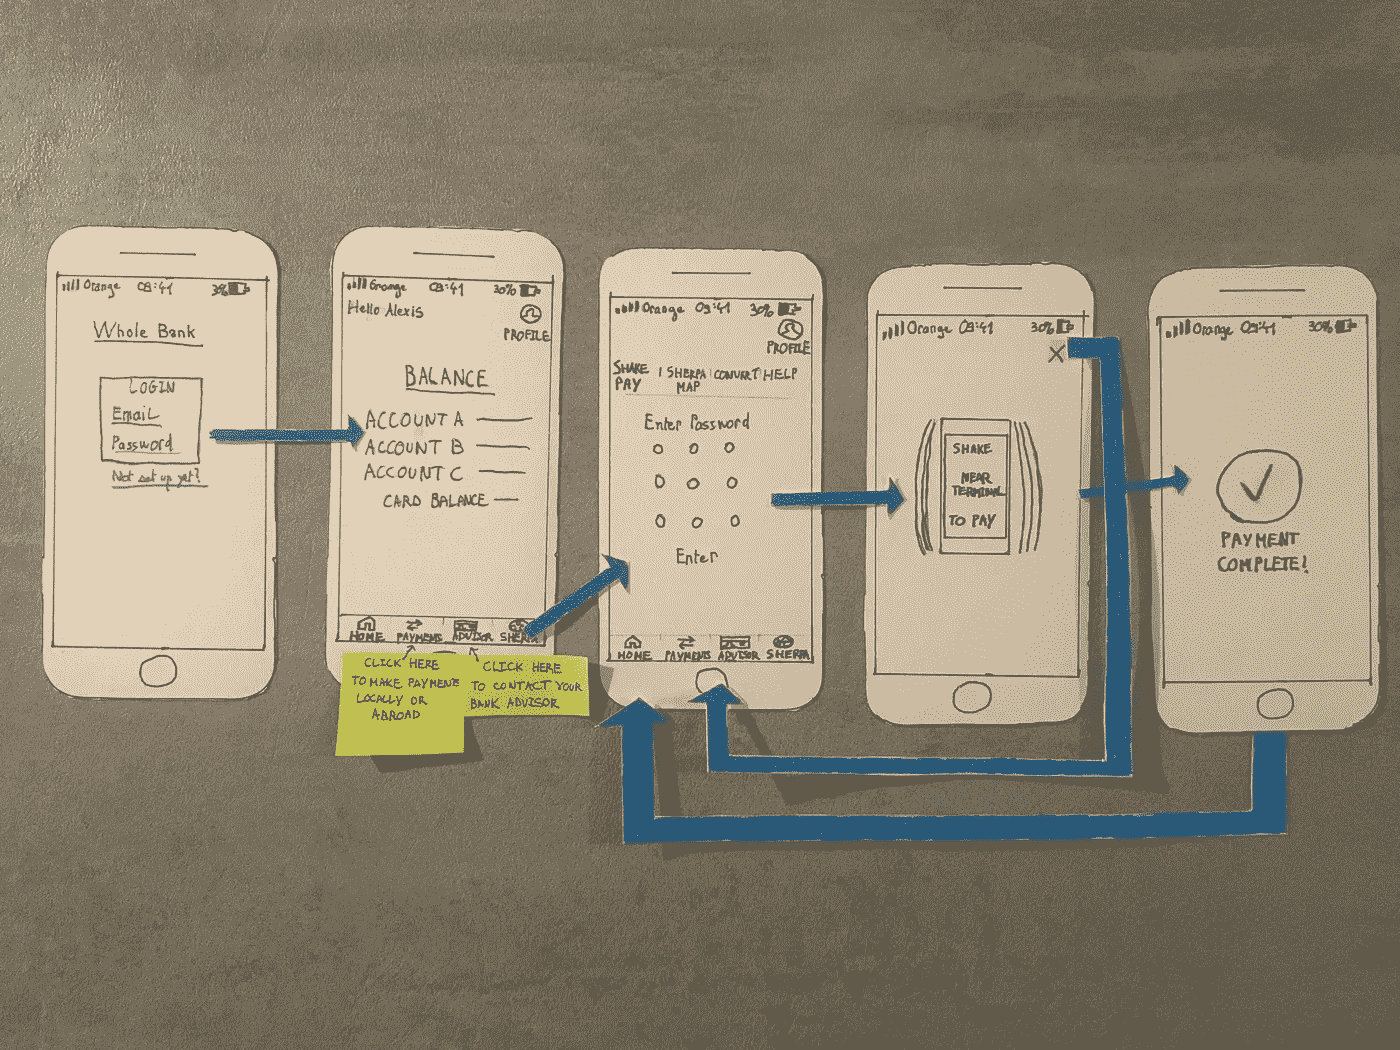 Orange 09:41 30%
Whole Bank
LOGIN
Email
Password
Not set up yet?
Orange 09:41 30%
Hello Alexis
PROFILE
BALANCE
ACCOUNT A
ACCOUNT B
ACCOUNT C
CARD BALANCE
HOME PAYMENTS ADVISOR SHERPA
CLICK HERE
TO MAKE PAYMENTS
LOCALLY OR
ABROAD
CLICK HERE
TO CONTACT YOUR
BANK ADVISOR
Orange 09:41 30%
PROFILE
SHAKE PAY | SHERPA MAP | CONVERT | HELP
Enter Password
Enter
HOME PAYMENTS ADVISOR SHERPA
Orange 09:41 30%
X
SHAKE
NEAR
TERMINAL
TO PAY
Orange 09:41 30%
PAYMENT
COMPLETE!